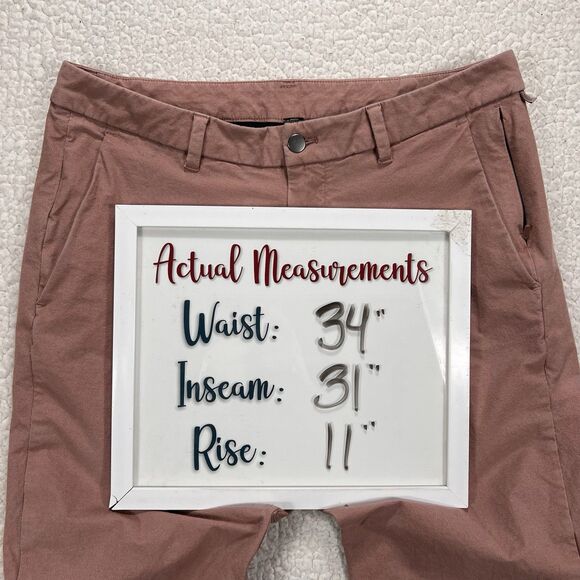 Actual Measurements
Waist: 34"
Inseam: 31"
Rise: 11"